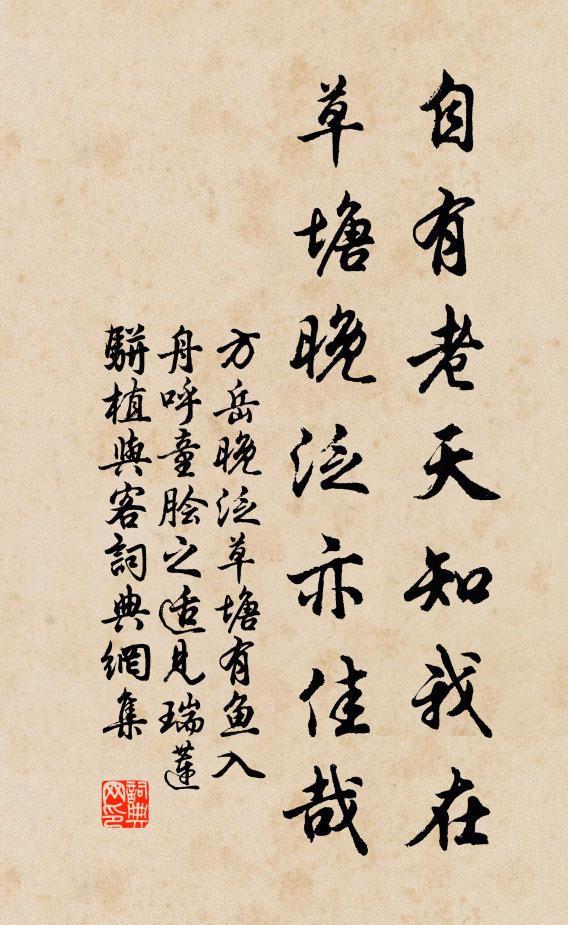 自有老天知我在
草塘晚泛亦佳哉
方岳晚泛草塘有鱼入
舟呼童脍之适见瑞莲
駢植與客詞典網集
詞典网印